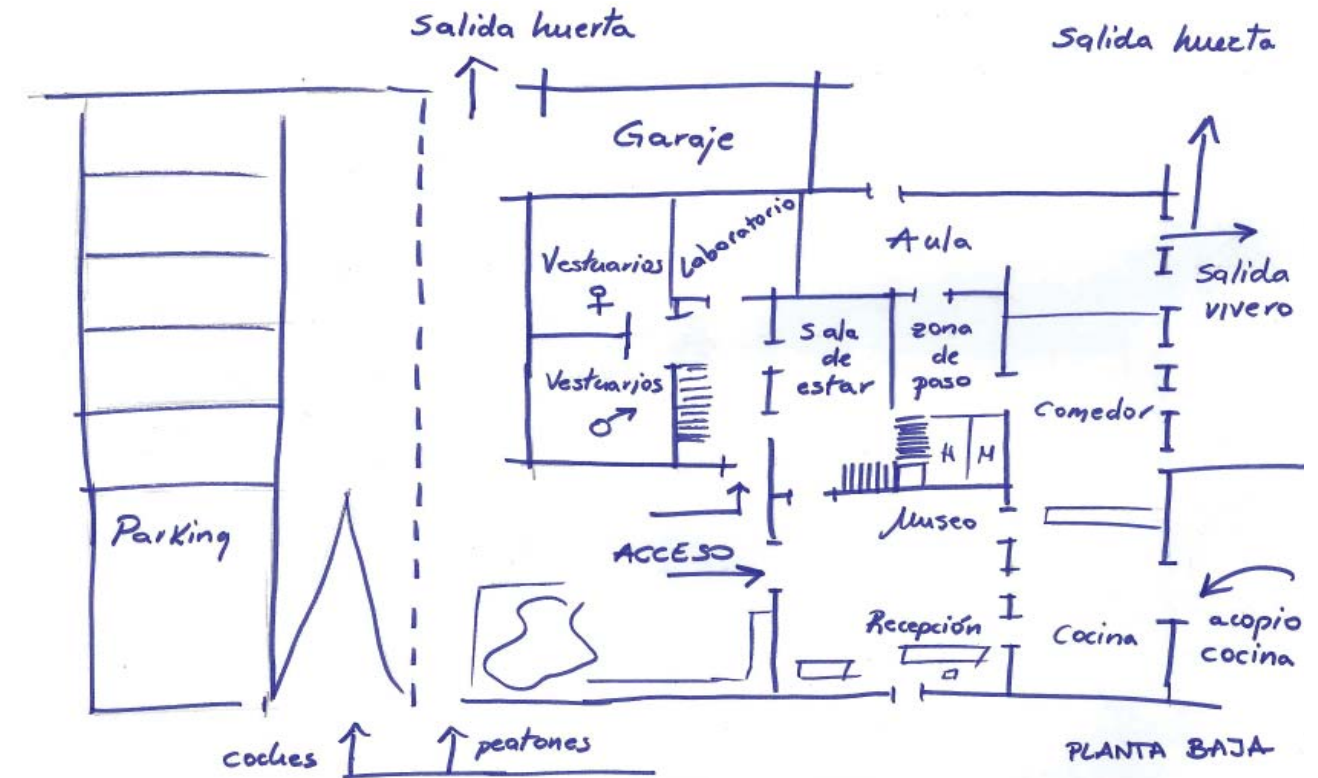 Salida huerta
Salida huerta
Garaje
Vestuarios
Laboratorio
Aula
Salida
vivero
Sala
de
estar
zona
de
paso
Vestuarios
Comedor
H M
Parking
Museo
ACCESO
Recepción
Cocina
acopio
cocina
coches
peatones
PLANTA BAJA